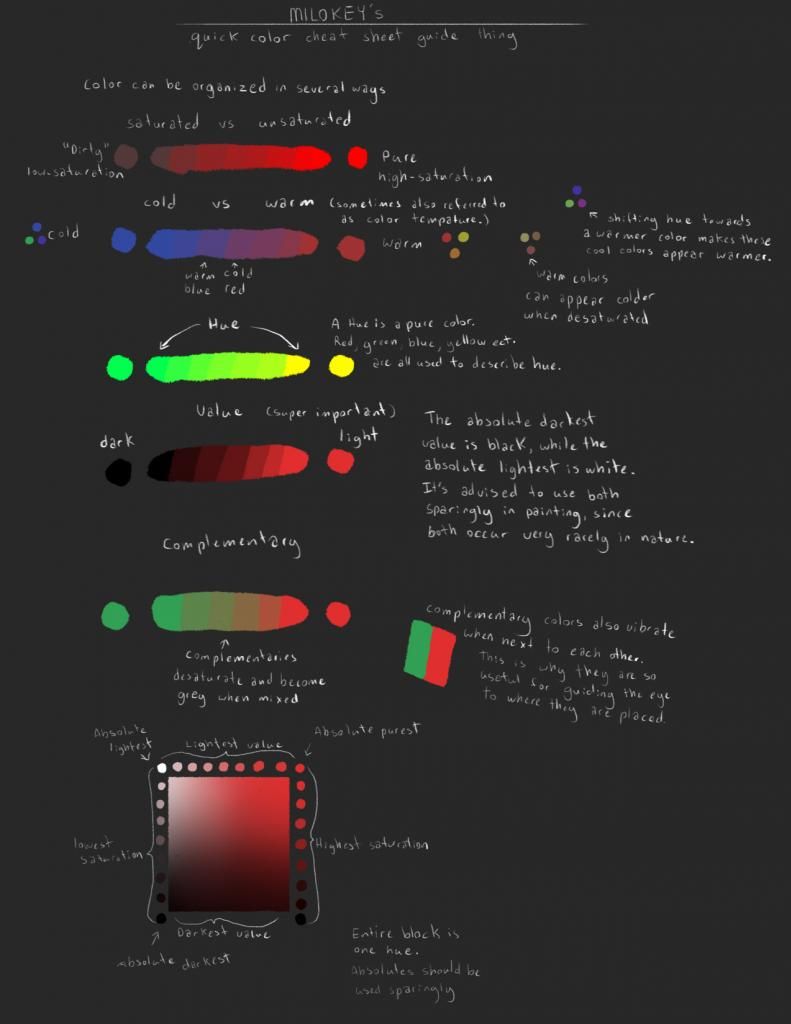 MILOKEY's
quick color cheat sheet guide thing
Color can be organized in several ways
saturated vs unsaturated
"Dirty"
low-saturation
Pure
high-saturation
cold vs warm (sometimes also referred to
as color tempature.)
cold
warm
warm cold
blue red
shifting hue towards
a warmer color makes these
cool colors appear warmer.
warm colors
can appear colder
when desaturated
Hue
A Hue is a pure color.
Red, green, blue, yellow ect.
are all used to describe hue.
Value (super important)
dark
light
The absolute darkest
value is black, while the
absolute lightest is white.
It's advised to use both
sparingly in painting, since
both occur very rarely in nature.
Complementary
complementaries
desaturate and become
grey when mixed
complementary colors also vibrate
when next to each other.
This is why they are so
useful for guiding the eye
to where they are placed.
Absolute
lightest
Lightest value
Absolute purest
lowest
saturation
Highest saturation
Darkest value
absolute darkest
Entire block is
one hue.
Absolutes should be
used sparingly